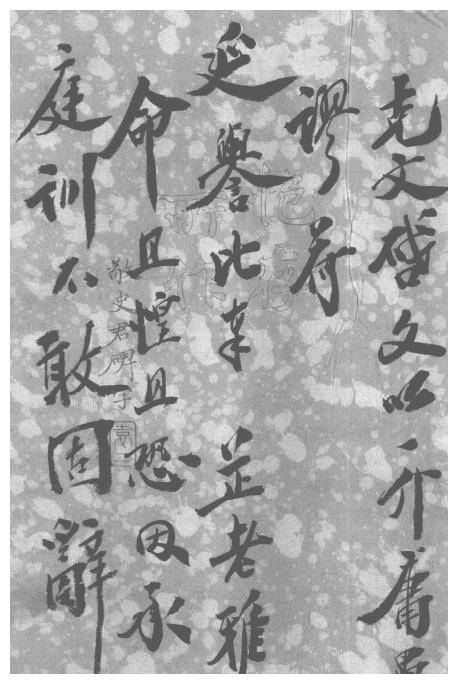 克文啓文以一介庸
謬荷
延譽比奉芷老雅
命且惶且恐因承
庭訓不敢固辭
敬史君碑字